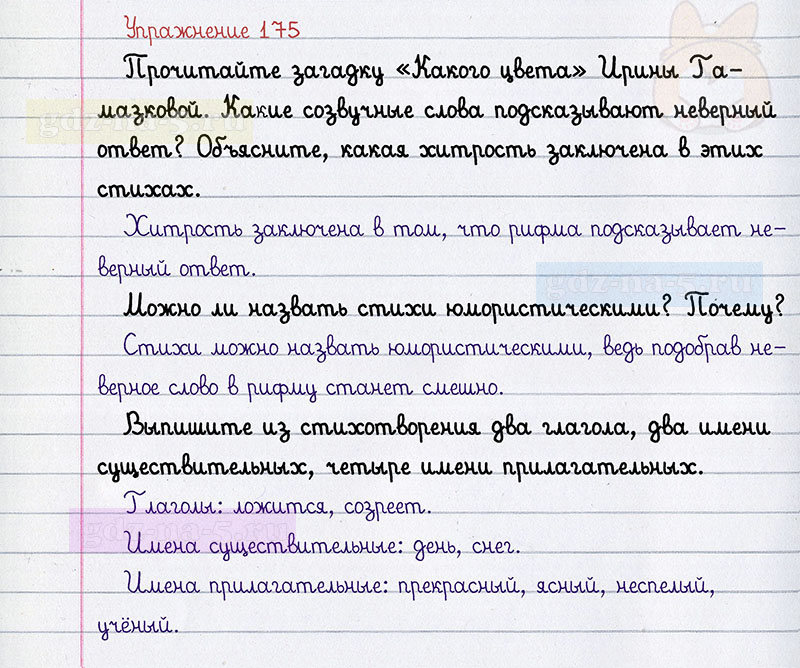 Упражнение 175
Прочитайте загадку «Какого цвета» Ирины Га-
мазковой. Какие созвучные слова подсказывают неверный
ответ? Объясните, какая хитрость заключена в этих
стихах.
Хитрость заключена в том, что рифма подсказывает не-
верный ответ.
Можно ли назвать стихи юмористическими? Почему?
Стихи можно назвать юмористическими, ведь подобрав не-
верное слово в рифму станет смешно.
Выпишите из стихотворения два глагола, два имени
существительных, четыре имени прилагательных.
Глаголы: ложится, созреет.
Имена существительные: день, снег.
Имена прилагательные: прекрасный, ясный, неспелый,
учёный.
gdz-na-5.ru
gdz-na-5.ru
gdz-na-5.ru